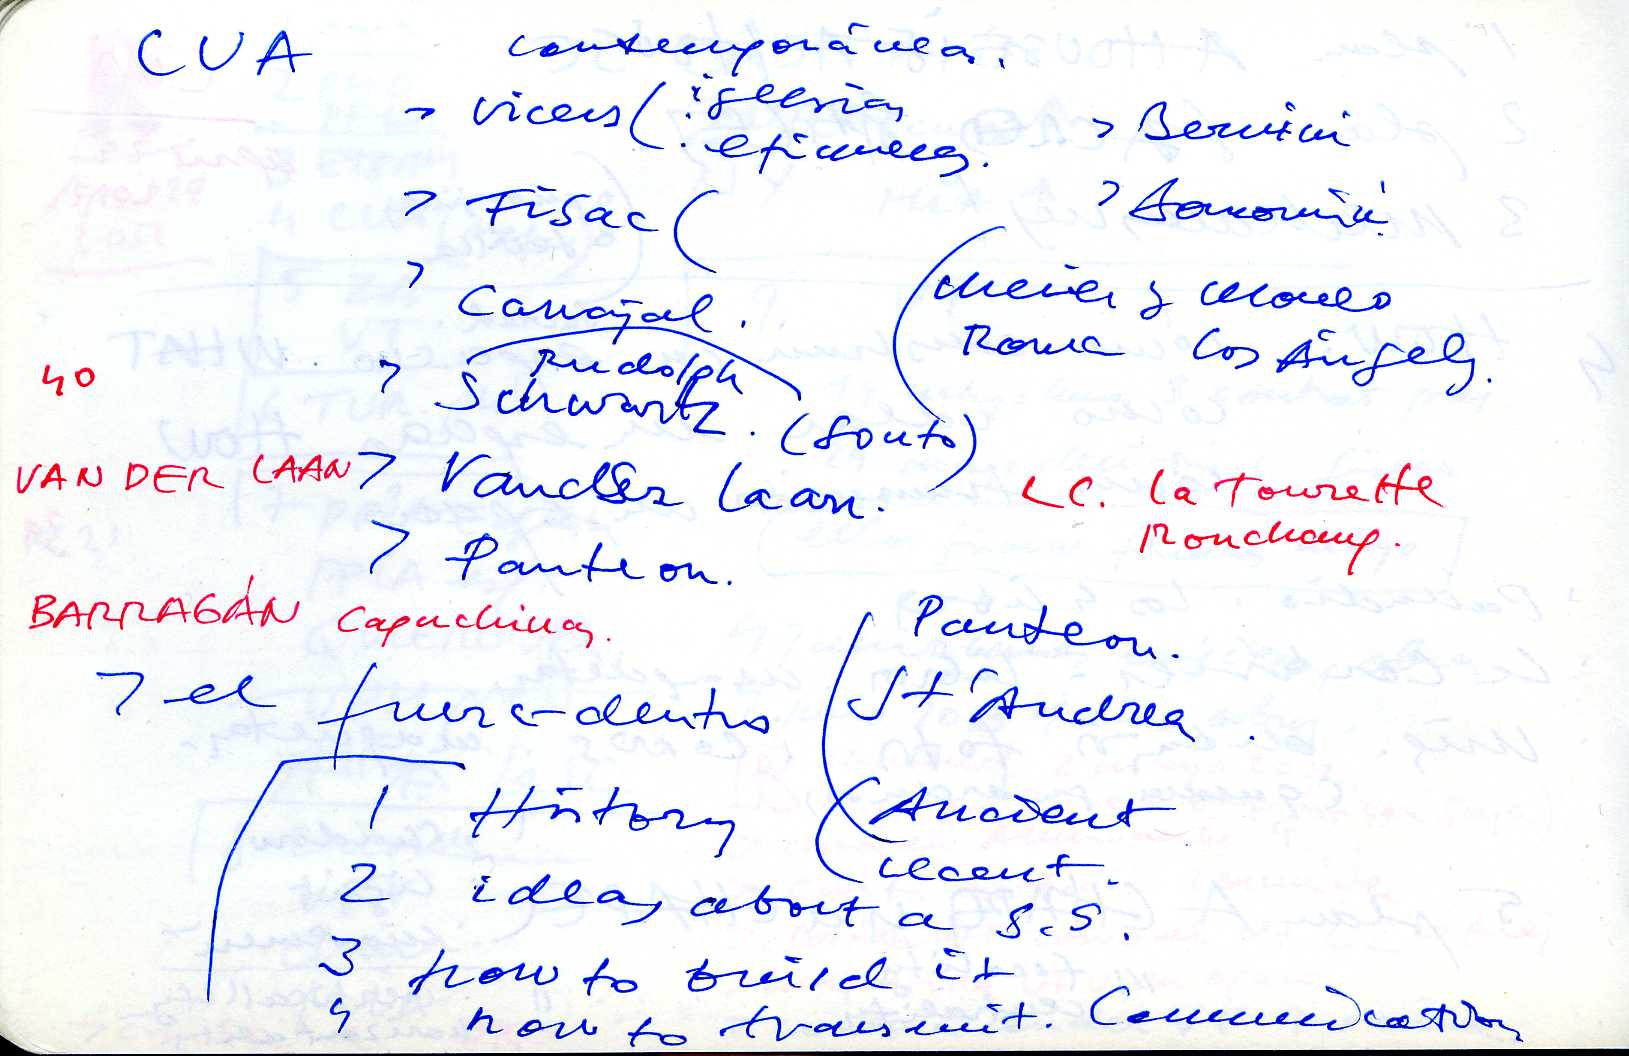 CUA contemporánea.
> Vicens ( . iglesias
. efímeras.
> Bernini
> Fisac (
> Borromini.
> Carvajal.
Meier y Moneo
Roma Los Ángeles.
40
> Rudolph
Schwartz. (Souto)
VAN DER LAAN
> Vander Laan.
LC. la Tourette
Ronchamp.
> Panteon.
BARRAGÁN Capuchinas.
Panteon.
St'Andrea.
> el fuera-dentro
1 History (Ancient
recent.
2 ideas about a S.S.
3 how to build it
4 how to transmit. Communication